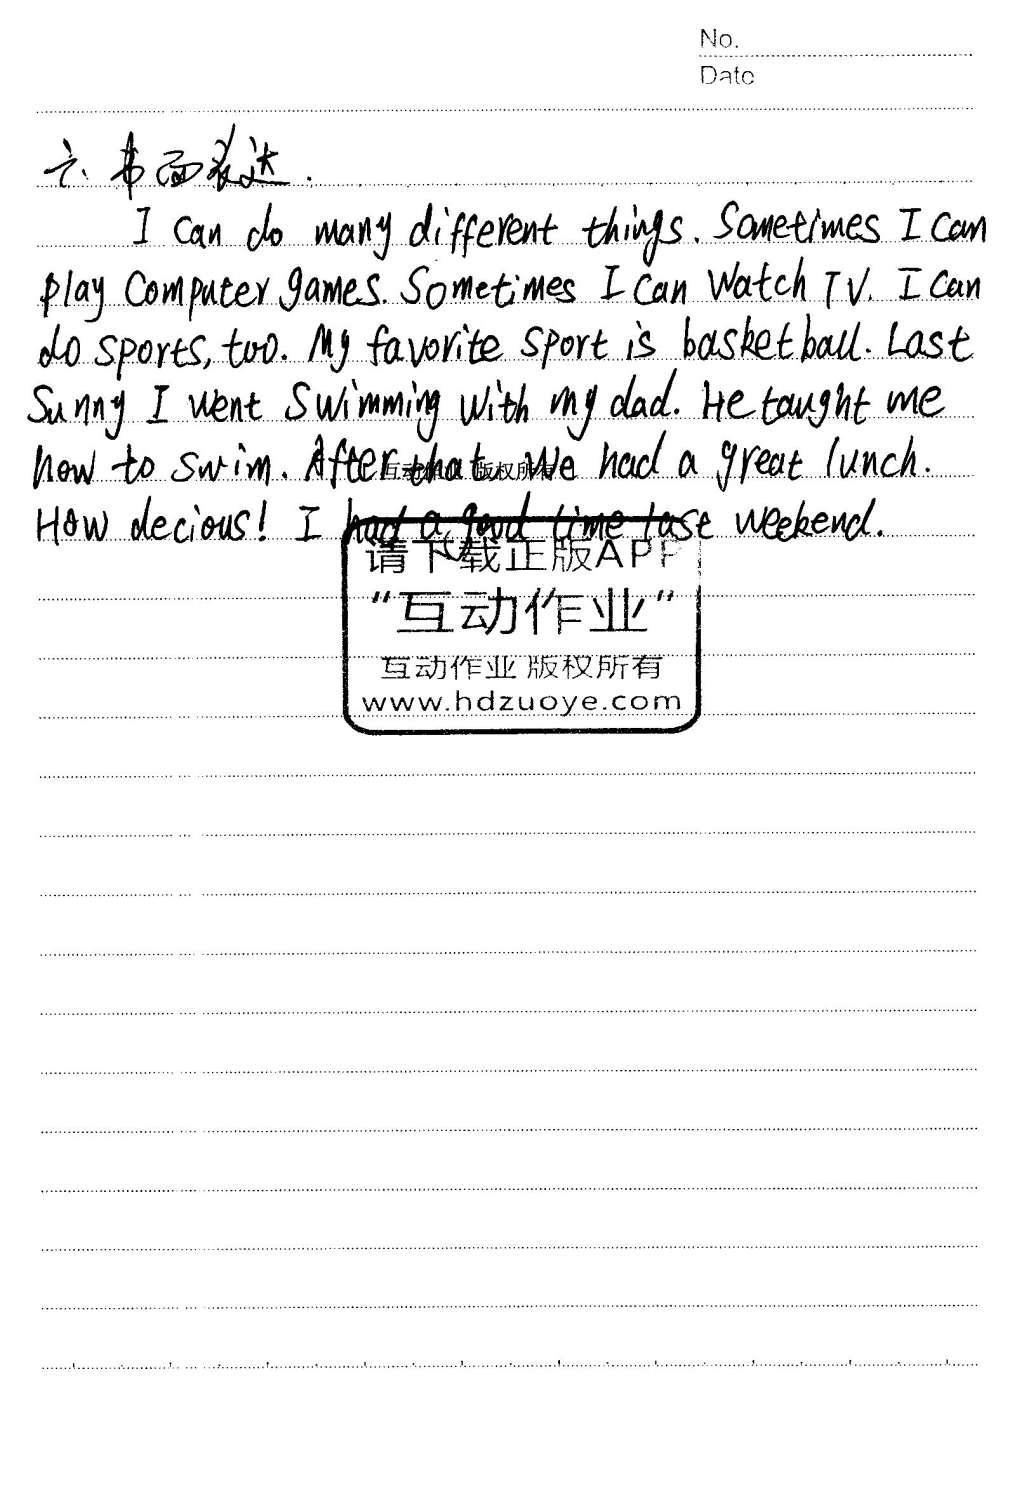 No.
Date
六、书面表达.
I can do many different things. Sometimes I can
play computer games. Sometimes I can watch TV. I can
do sports, too. My favorite sport is basketball. Last
Sunny I went swimming with my dad. He taught me
how to swim. After that We had a great lunch.
互动作业 版权所有
How decious! I had a good time last weekend.
请下载正版APP
“互动作业”
互动作业 版权所有
www.hdzuoye.com